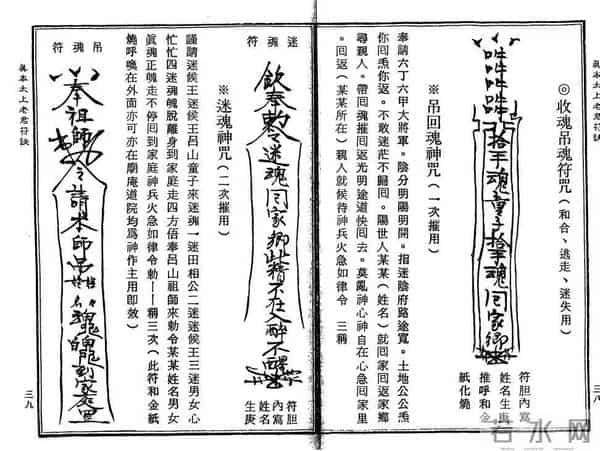 眞本太上老君符訣
◎收魂吊魂符咒（和合、逃走、迷失用）
符胆內寫
姓名生庚
推呼和金
紙化燒
※吊回魂神咒（一次摧用）
奉請六丁六甲大將軍。陰分明陽明開。指迷陰府路途寬。土地公公
你囘你返。不敢迷茫不歸囘。陽世人某某（姓名）就囘家囘返家鄉
尋親人。帶囘魂摧囘返光明途道快囘去。莫亂神心神自在心急囘家里
。囘返（某某所在）親人就候待神兵火急如律令　三稱
三八
迷魂符
欽奉敕令迷魂囘家鄉此精不在入醉不醒
符胆
內寫
姓名
生庚
※迷魂神咒（二次摧用）
謹請迷候王迷候王呂山童子來迷魂一迷田相公二迷迷候王三迷男女心
忙忙四迷魂魄脫離身到家庭走四方倍奉呂山祖師來勅令某某姓名男女
眞魂正魄走不停囘到家庭神兵火急如律令勅——稱三次（此符和金紙
燒呼喚在外面亦可亦在廟庵道院均爲神作主用卽效）
吊魂符
奉祖師之請本師吊魂魄到家
眞本太上老君符訣
三九
谷水网